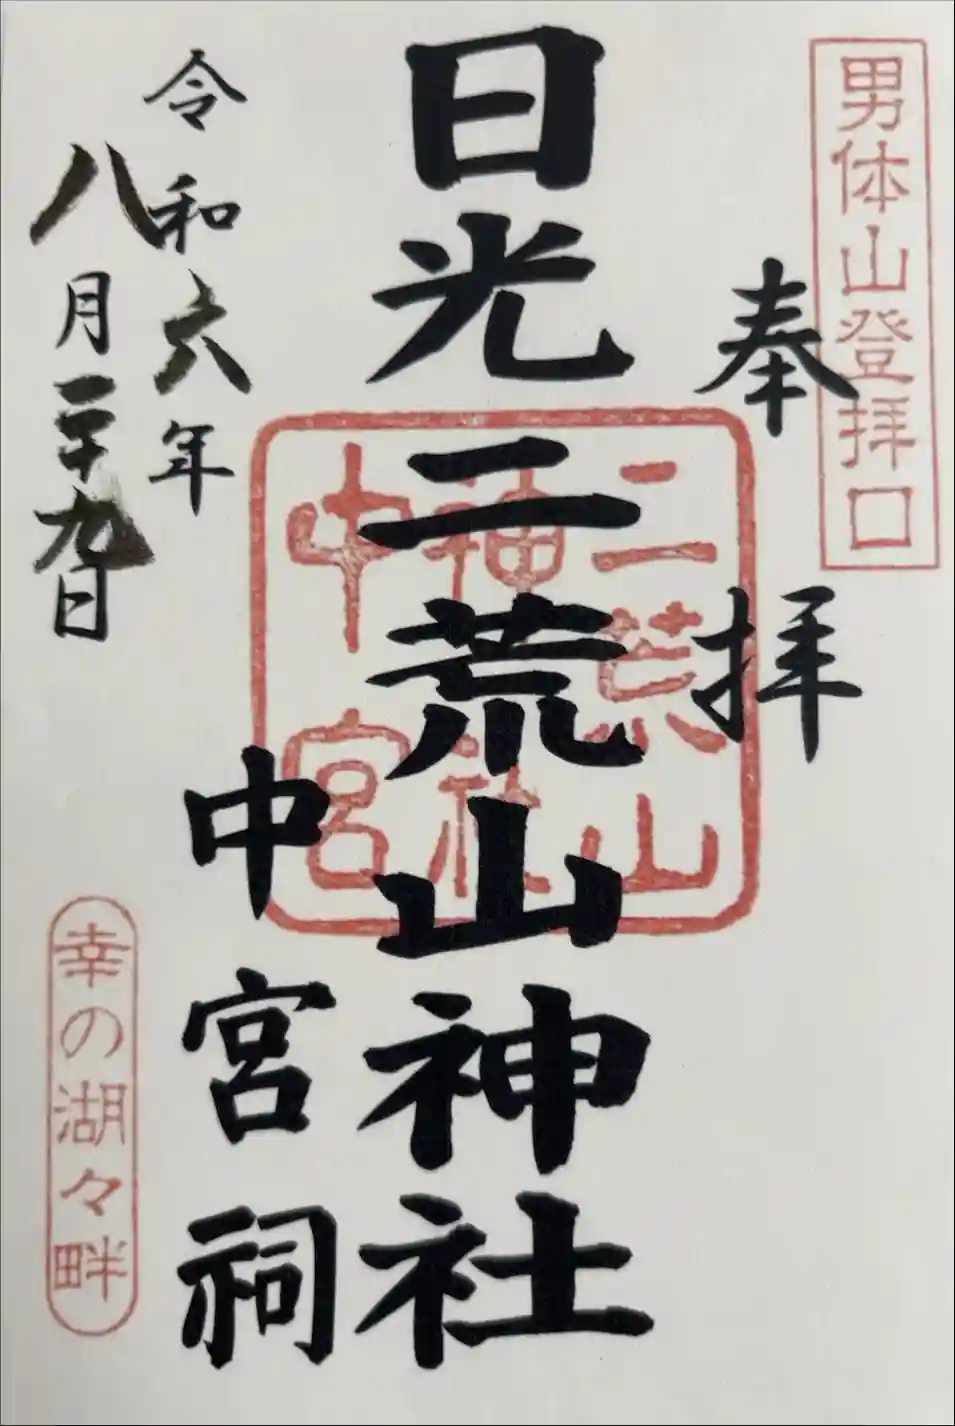 男体山登拝口
奉拝
日光二荒山神社
中宮祠
二荒山
神社
中宮
令和六年
八月二十九日
幸の湖々畔